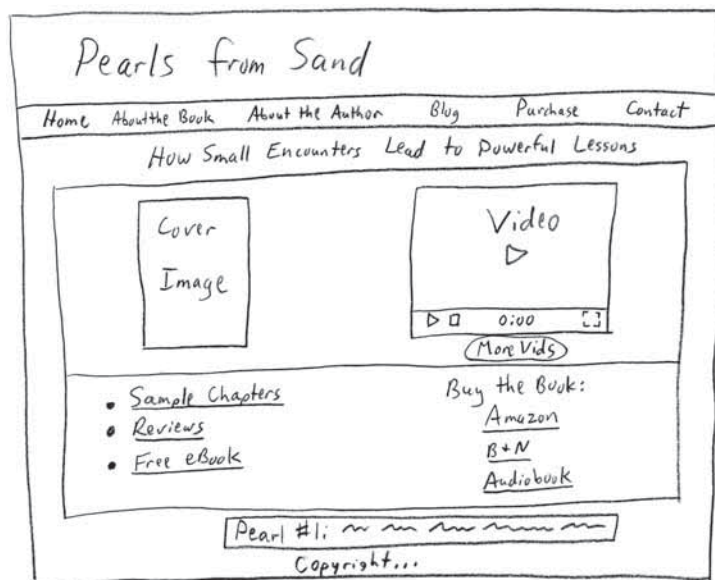 Pearls from Sand
Home About the Book About the Author Blog Purchase Contact
How Small Encounters Lead to Powerful Lessons
Cover
Image
Video
0:00
More Vids
• Sample Chapters
• Reviews
• Free eBook
Buy the Book:
Amazon
B+N
Audiobook
Pearl #1:
Copyright...